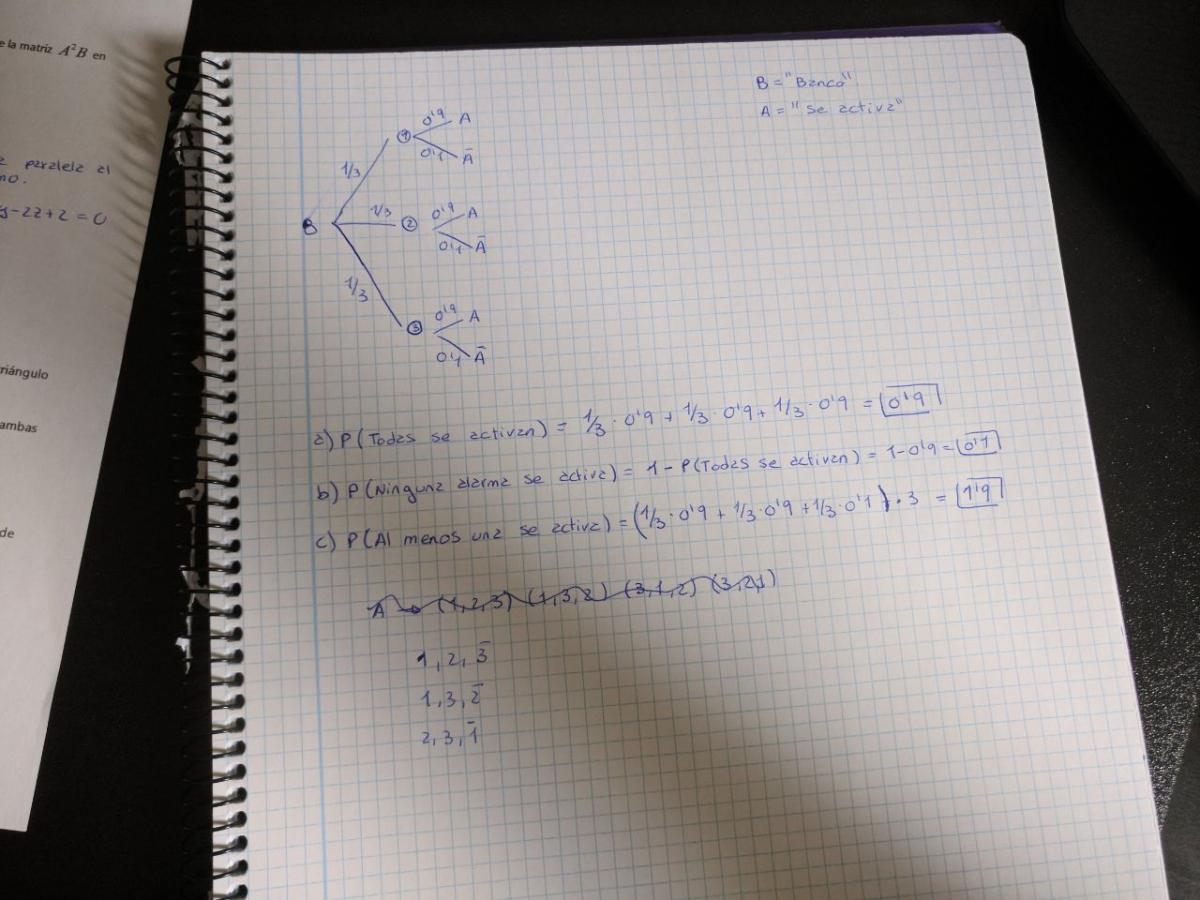 e la matriz A²B en
paralela al
mo.
y-2z+2=0
riángulo
ambas
de
B="Banco"
A="Se activa"
0'9 A
1
0'1 Ā
1/3
B 1/3 2 0'9 A
0'1 Ā
1/3
3 0'9 A
0'1 Ā
a) P(Todas se activan) = 1/3·0'9 + 1/3·0'9 + 1/3·0'9 = 0'9
b) P(Ninguna alarma se activa) = 1-P(Todas se activan) = 1-0'9 = 0'1
c) P(Al menos una se activa) = (1/3·0'9 + 1/3·0'9 + 1/3·0'1)·3 = 1'9
A → (1,2,3) (1,3,2) (3,1,2) (3,2,1)
1, 2, 3̄
1, 3, 2̄
2, 3, 1̄